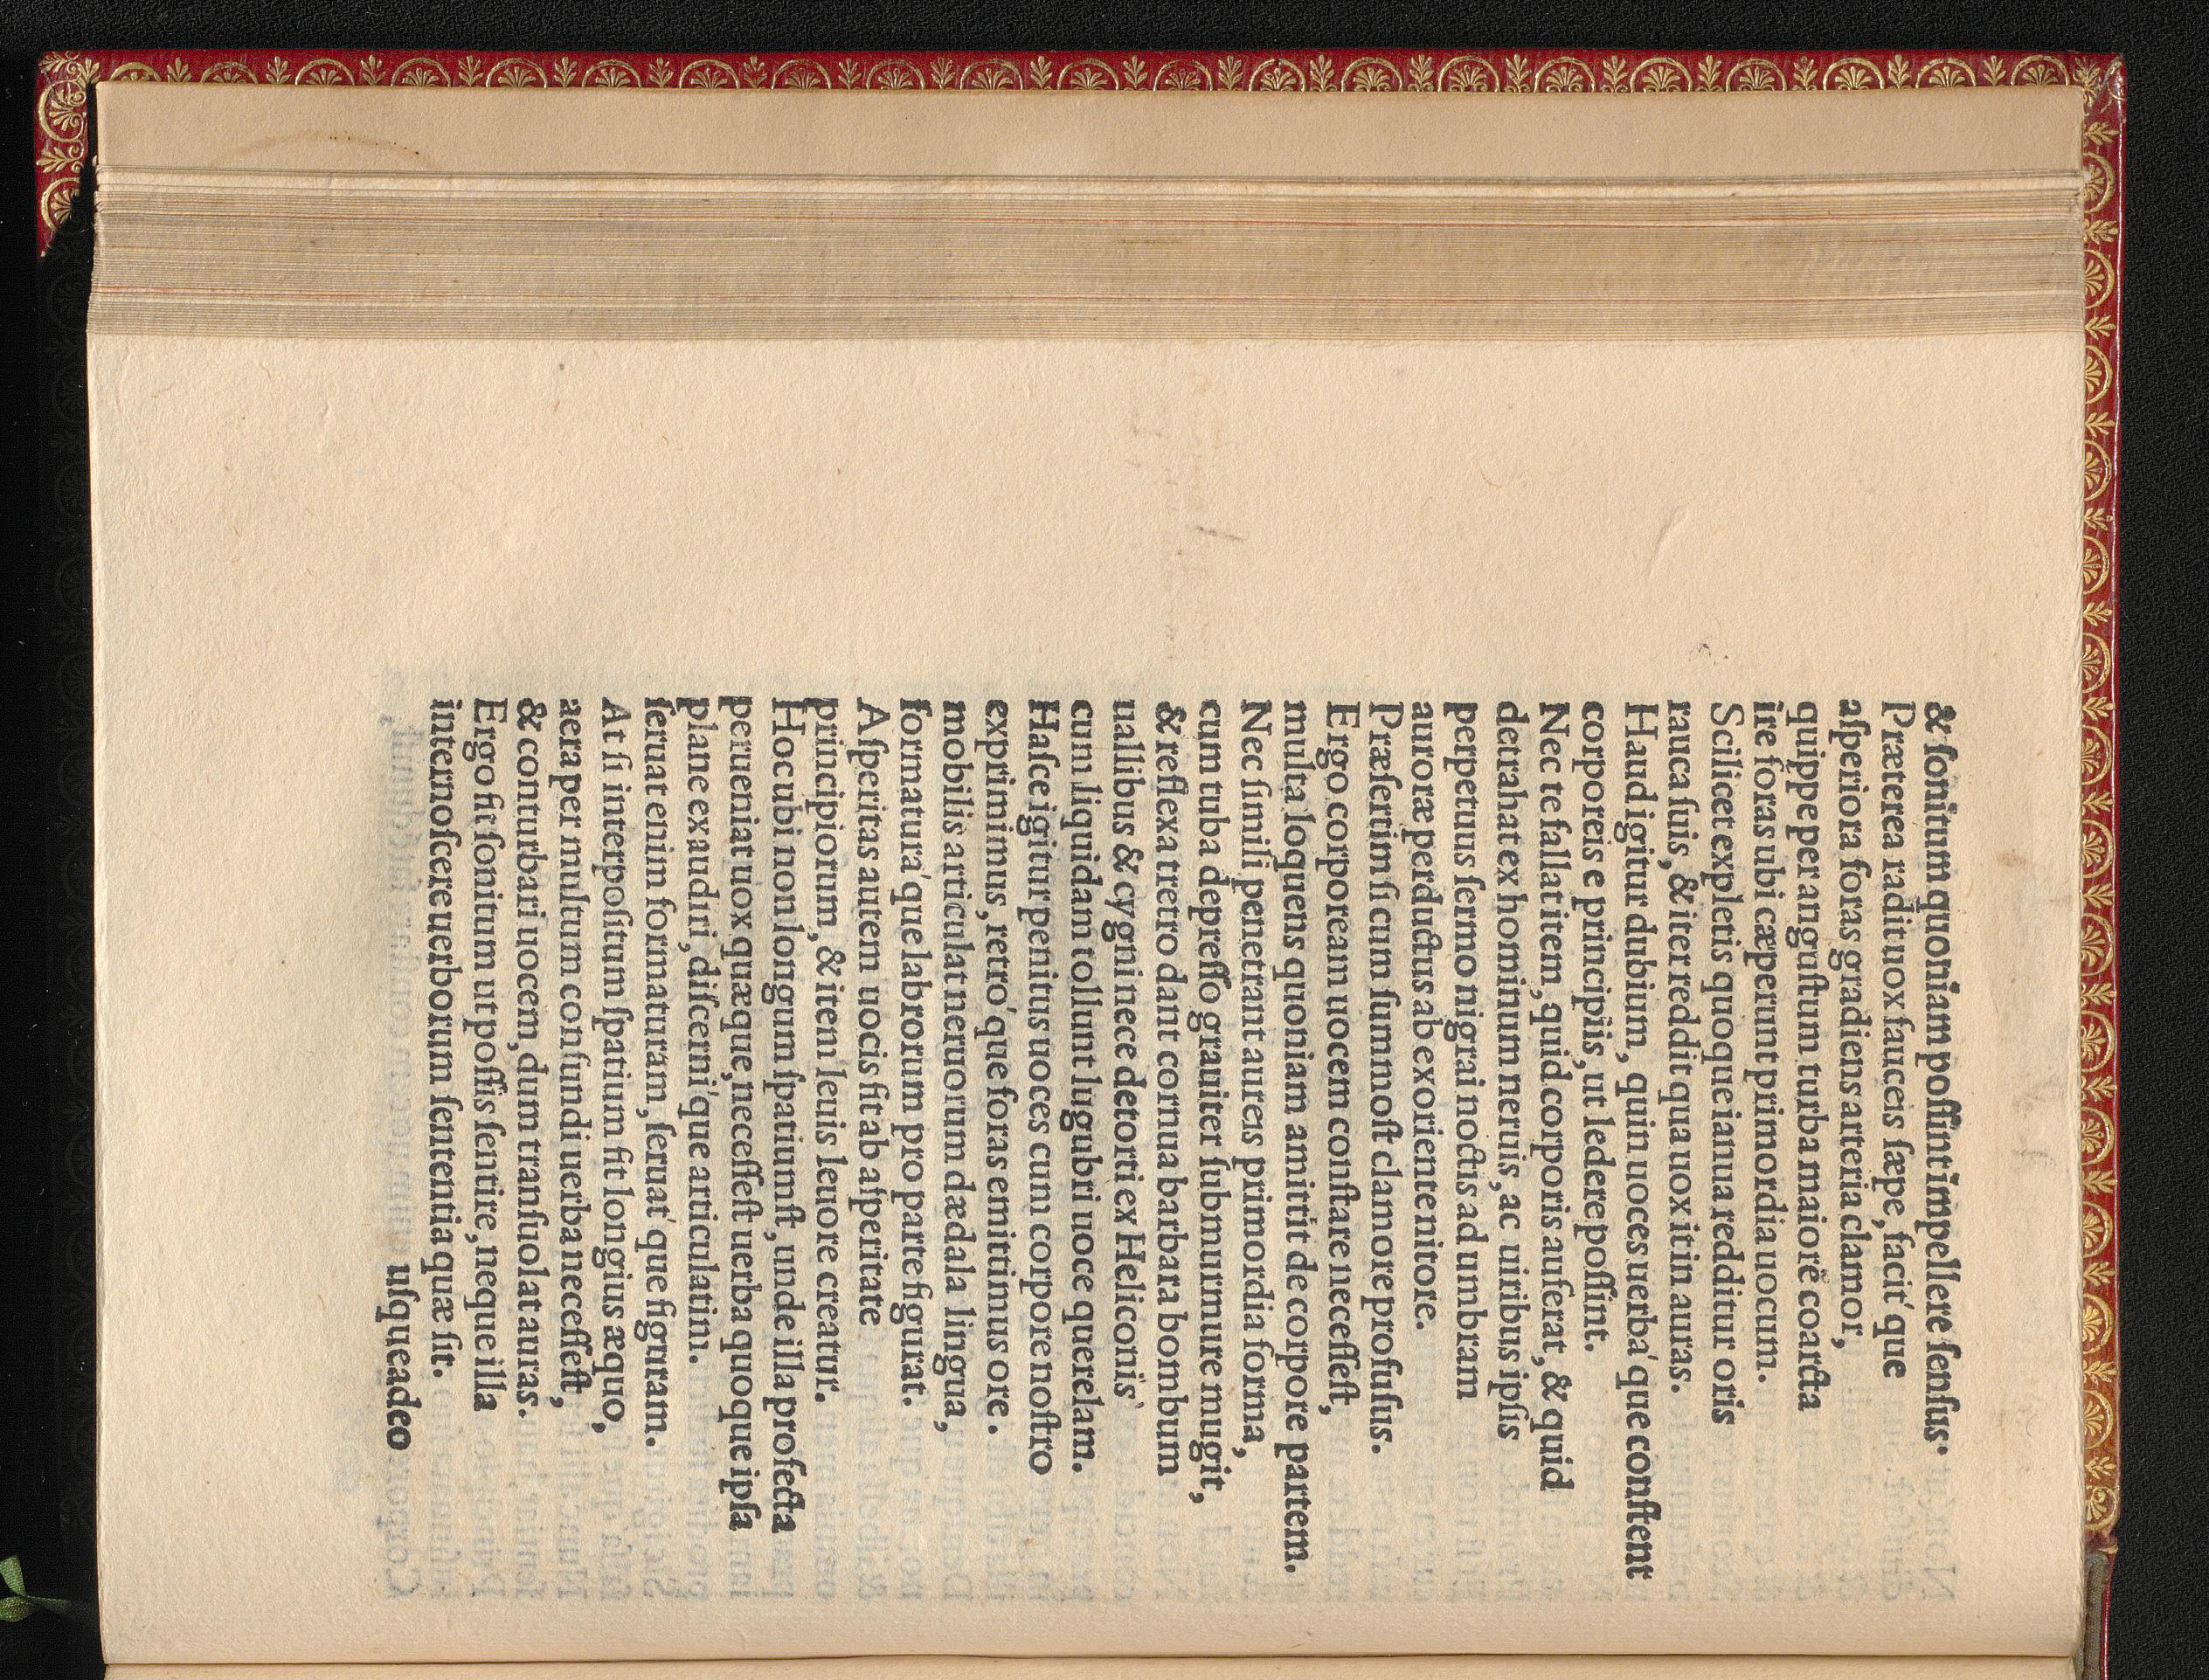 & ſonitum quoniam poſſint inpellere ſenſus.
Præterea radit uox fauceis ſæpe, facit' que
aſperiora foras gradiens arteria clamor,
quippe per anguſtum turba maiorē coarcta
ire foras ubi cæperunt primordia uocum.
Scilicet expletis quoque ianua redditur oris
rauca ſuis, & iter reddit qua uox it in auras.
Haud igitur dubium, quin uoces uerba' que conſtent
corporeis e principiis, ut ledere poſſint.
Nec te fallat item, quid corporis auferat, & quid
detrahat ex hominum neruis, ac uiribus ipſis
perpetuus ſermo nigrai noctis ad umbram
auroræ perductus ab exoriente nitore.
Præſertim ſi cum ſummoſt clamore profuſus.
Ergo corpoream uocem conſtare neceſſeſt,
multa loquens quoniam amittit de corpore partem.
Nec ſimili penetrant aureis primordia forma,
cum tuba depreſſo grauiter ſub murmure mugit,
& reflexa tretro dant cornua barbara bombum
uallibus & cygni nece detorti ex Heliconis
cum liquidam tollunt lugubri uoce querelam.
Haſce igitur penitus uoces cum corpore noſtro
exprimimus, retro' que foras emittimus ore.
mobilis articulat neruorum dædala lingua,
formatura' que labrorum pro parte figurat.
Aſperitas autem uocis fit ab aſperitate
principiorum, & item leuis leuore creatur.
Hoc ubi non longum ſpatiumſt, unde illa profecta
perueniat uox quæque, neceſſeſt uerba quoque ipſa
plane exaudiri, diſcerni' que articulatim.
ſeruat enim formaturam, ſeruat' que figuram.
At ſi interpoſitum ſpatium fit longius æquo,
aera per multum confundi uerba neceſſeſt,
& conturbari uocem, dum tranſuolat auras.
Ergo fit ſonitum ut poſſis ſentire, neque illa
internoſcere uerborum ſententia quæ ſit.
uſque adeo